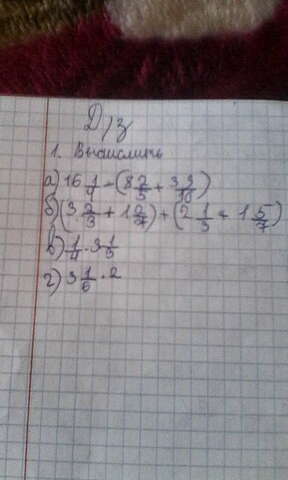 Д/з
1. Вычислить
а) 16 1/4 - (8 2/5 + 3 3/10)
б) (3 2/3 + 1 2/7) + (2 1/3 + 1 5/7)
в) 1/4 · 3 1/5
г) 3 1/6 · 2